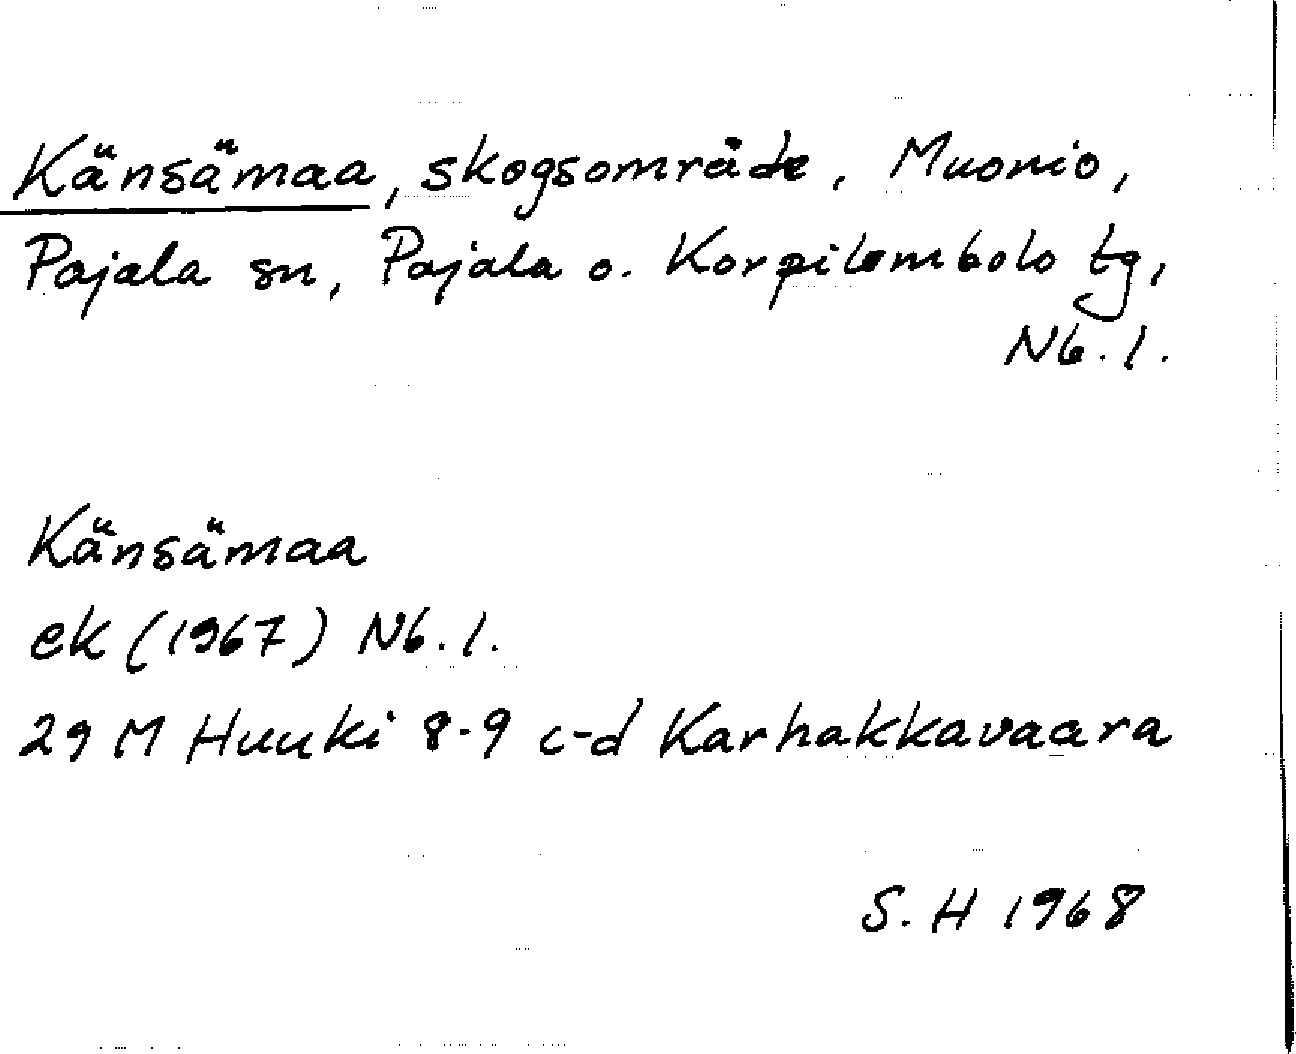 Känsämaa, skogsområde, Muonio,
Pajala sn, Pajala o. Korpilombolo tg,
Nb. l.
Känsämaa
ek (1967) Nb. l.
29 M Huuki 8-9 c-d Karhakkavaara
S. H 1968